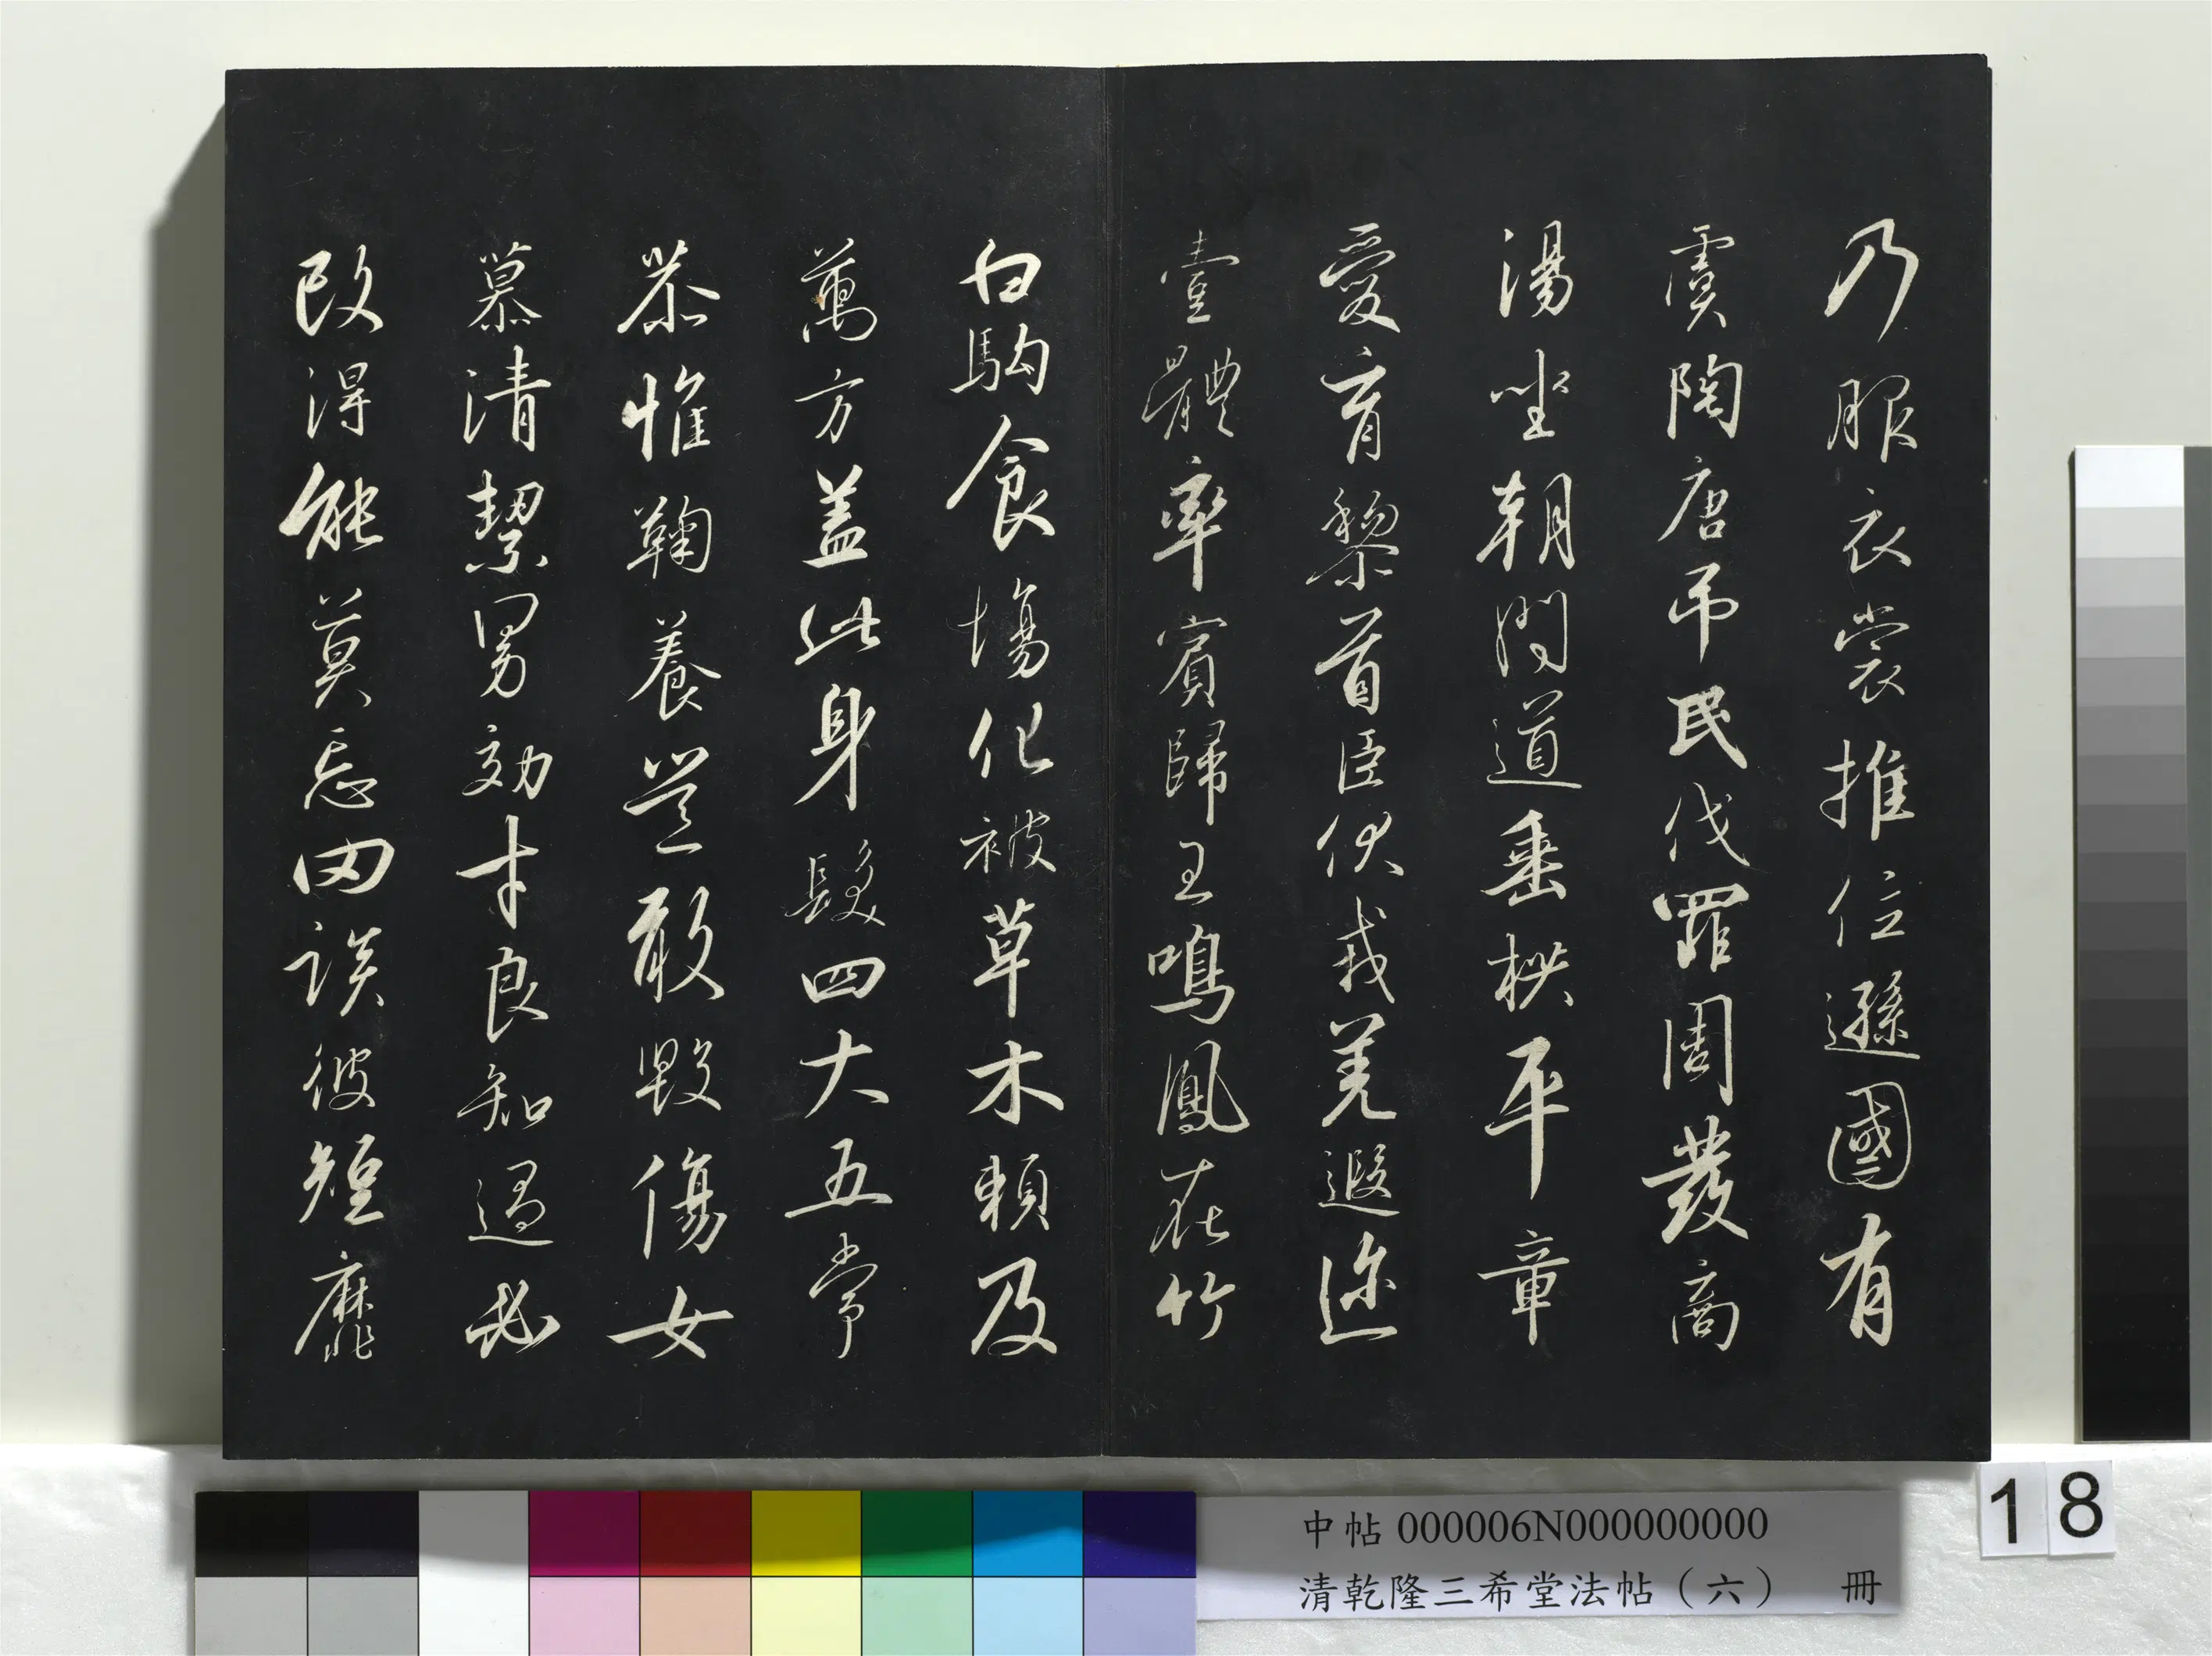 乃服衣裳推位遜國有
虞陶唐吊民伐罪周發商
湯坐朝問道垂拱平章
愛育黎首臣伏戎羌遐迩
壹體率賓歸王鳴鳳在竹
白駒食場化被草木賴及
萬方盖此身髮四大五常
恭惟鞠養豈敢毀傷女
慕清潔男効才良知過必
改得能莫忘罔談彼短靡
中帖 000006N000000000
清乾隆三希堂法帖（六） 冊
18